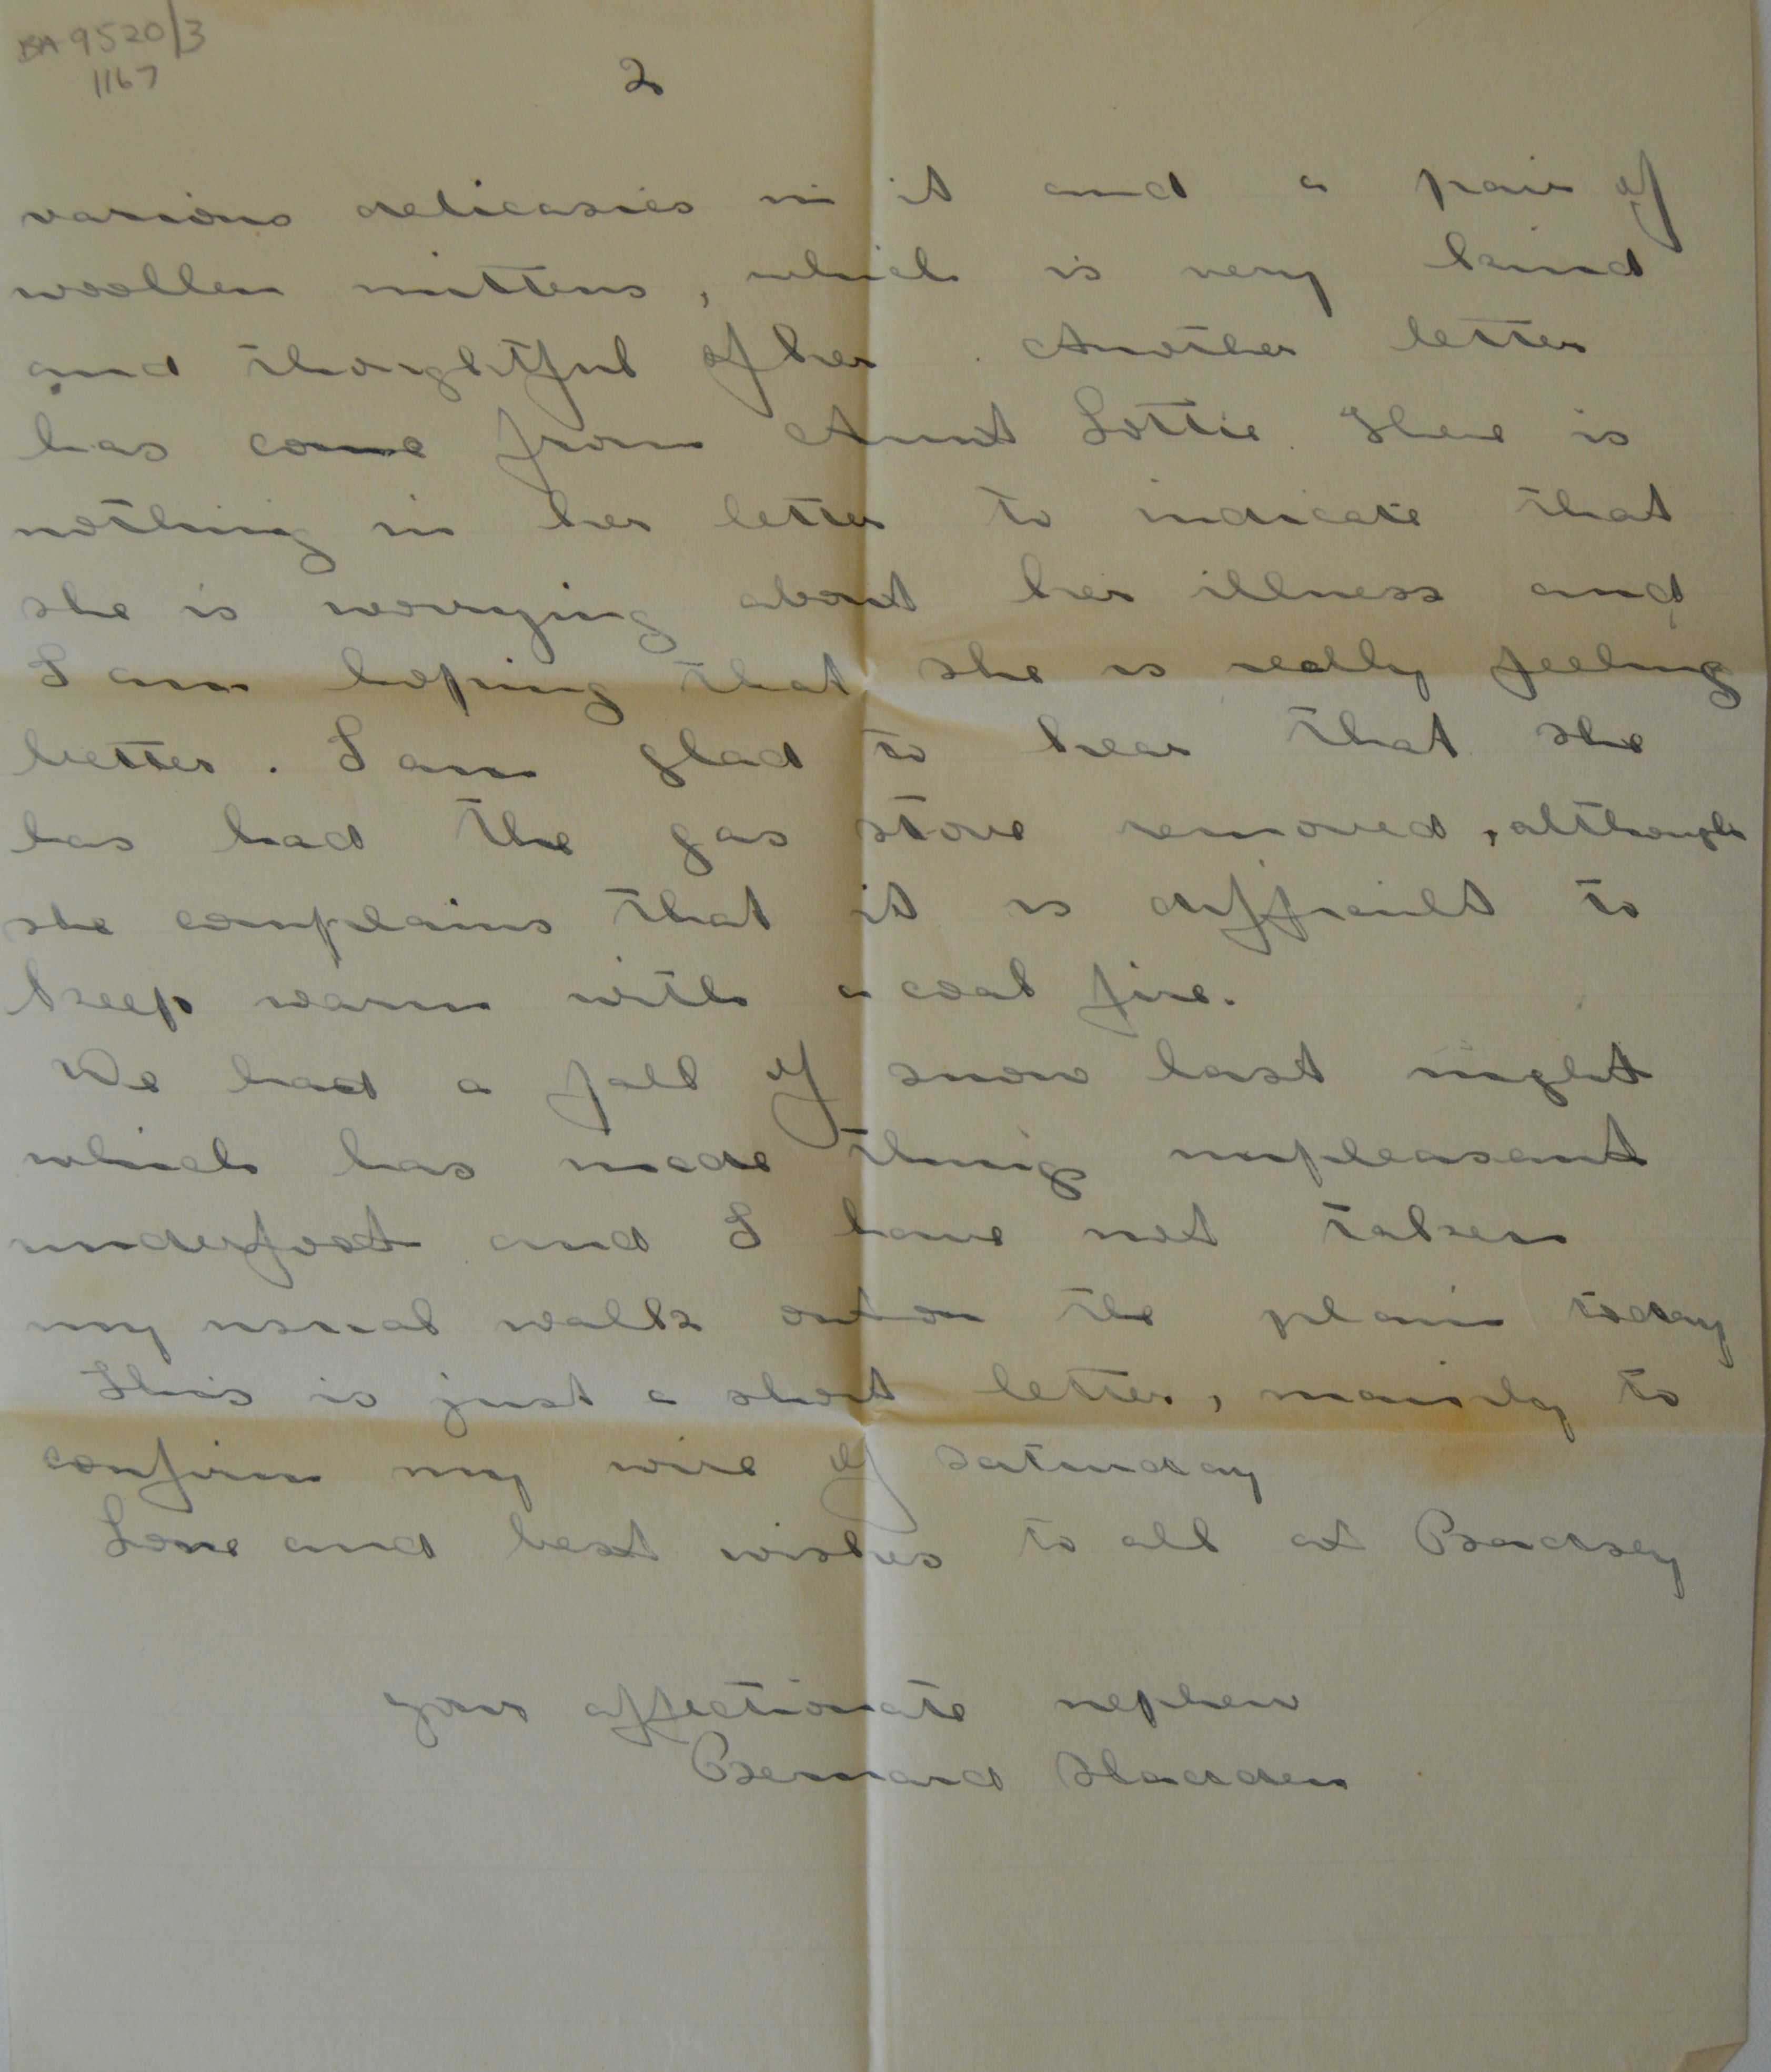 BA 9520/3
1167
2
various delicasies in it and a pair of
woollen mittens, which is very kind
and thoughtful of her. Another letter
has come from Aunt Lottie. There is
nothing in her letter to indicate that
she is worrying about her illness and
I am hoping that she is really feeling
better. I am glad to hear that she
has had the gas stove removed, although
she complains that it is difficult to
keep warm with a coal fire.
We had a fall of snow last night
which has made things unpleasant
underfoot and I have not taken
my usual walk out on the plain today
This is just a short letter, mainly to
confirm my wire of Saturday
Love and best wishes to all at Badsey
your affectionate nephew
Bernard Sladden